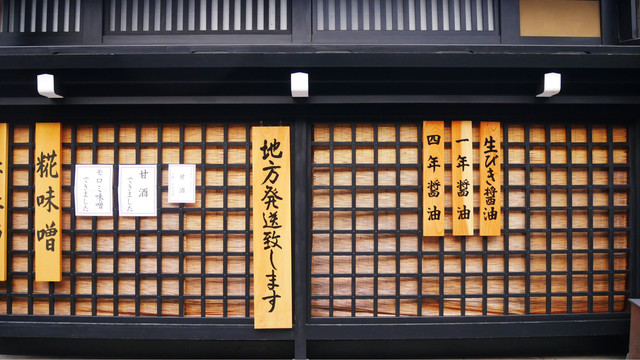 糀味噌
モロミ味噌
できました
甘酒
できました
甘酒
地方発送致します
四年醤油
一年醤油
生びき醤油